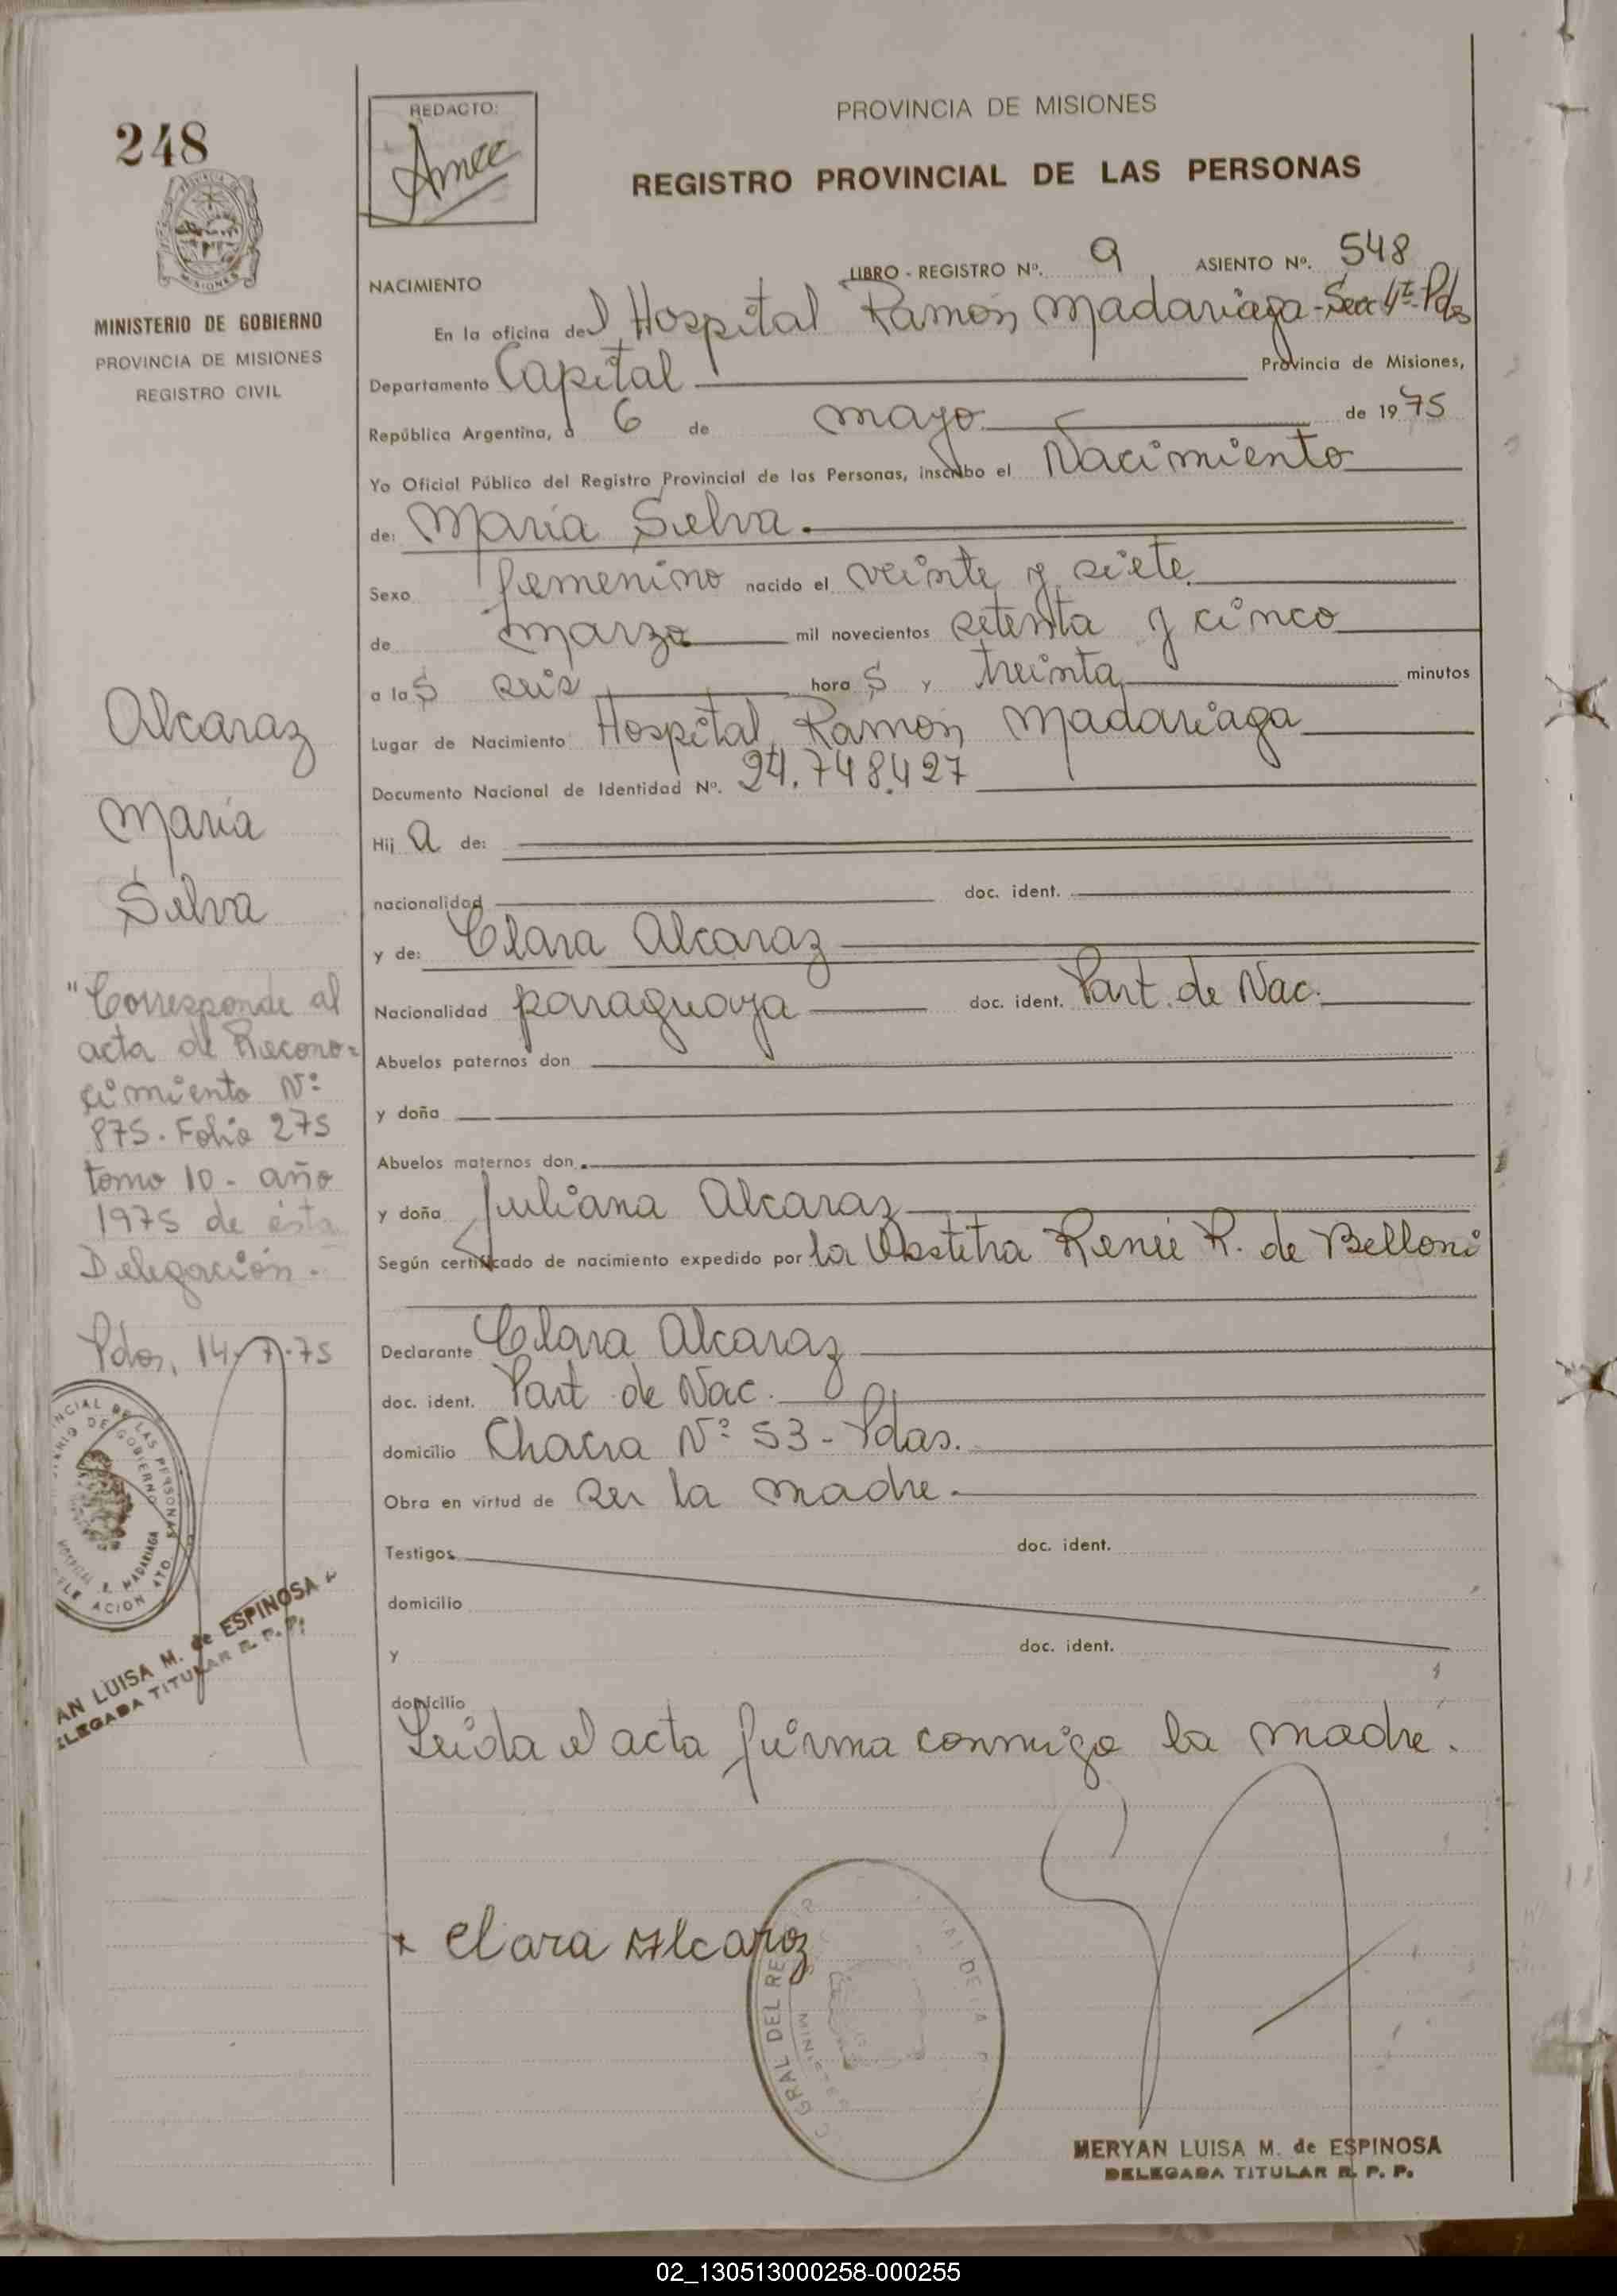 248
REDACTO:
PROVINCIA DE MISIONES
REGISTRO PROVINCIAL DE LAS PERSONAS
MISIONES
MINISTERIO DE GOBIERNO
PROVINCIA DE MISIONES
REGISTRO CIVIL
LIBRO - REGISTRO Nº. 9 ASIENTO Nº. 548
NACIMIENTO
En la oficina del Hospital Ramón Madariaga - Secc 4ª Pdas
Departamento Capital Provincia de Misiones,
República Argentina, a 6 de mayo de 1975
Yo Oficial Público del Registro Provincial de las Personas, inscribo el Nacimiento
de: María Silva.
Sexo femenino nacido el veinte y siete
de marzo mil novecientos setenta y cinco
a las seis horas y treinta minutos
Lugar de Nacimiento Hospital Ramón Madariaga
Documento Nacional de Identidad Nº. 24.748.427
Hija de:
nacionalidad doc. ident.
y de: Clara Alcaraz
Nacionalidad paraguaya doc. ident. Part. de Nac.
Abuelos paternos don
y doña
Abuelos maternos don
y doña Juliana Alcaraz
Según certificado de nacimiento expedido por la Obstetra Renée R. de Belloni
Declarante Clara Alcaraz
doc. ident. Part. de Nac.
domicilio Chacra Nº 53 - Pdas.
Obra en virtud de ser la madre.
Testigos doc. ident.
domicilio
y doc. ident.
domicilio
Leída el acta firma conmigo la madre.
Clara Alcaraz
GRAL DEL RE
MERYAN LUISA M. de ESPINOSA
DELEGADA TITULAR R. P. P.
Alcaraz
María
Silva
"Corresponde al
acta de Recono=
cimiento Nº
875. Folio 275
tomo 10 - año
1975 de ésta
Delegación.
Pdas, 14-7-75
AN LUISA M. de ESPINOSA
LEGADA TITULAR R. P. P.
02_130513000258-000255